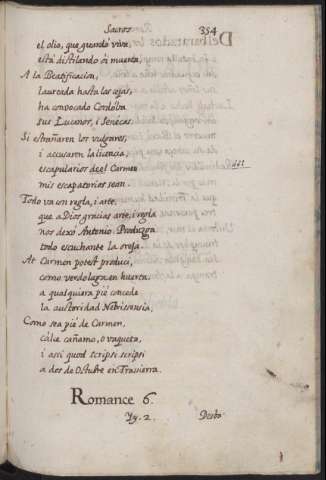 Sacros
354
el olio, que guardó viva,
está distilando ói muerta,
A la Beatificacion,
laureada hasta las cejas,
ha convocado Cordoba
sus Lucanos, i Senecas.
Si estrañaren los vulgares,
i acusaren la licencia,
escapularios de el Carmen
mis escapatorios sean.
Todo va en regla, i arte,
que a Dios gracias arte, i regla
nos dexò Antonio. Produzga
todo escuchante la oreja.
At Carmen potest produci,
como verdolaga en huerta,
a qualquiera pié concede
la autoridad Nebrissensia,
Como sea pié de Carmen,
calze cañamo, o vaqueta,
i asi quod scripsi scripsi
a dos de Octubre en Trasierra.
Romance 6.
Yy. 2.